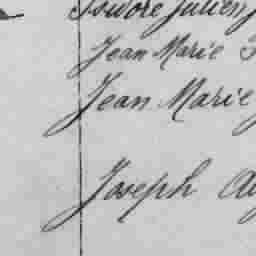 Isidore Julien
Jean Marie
Jean Marie
Joseph